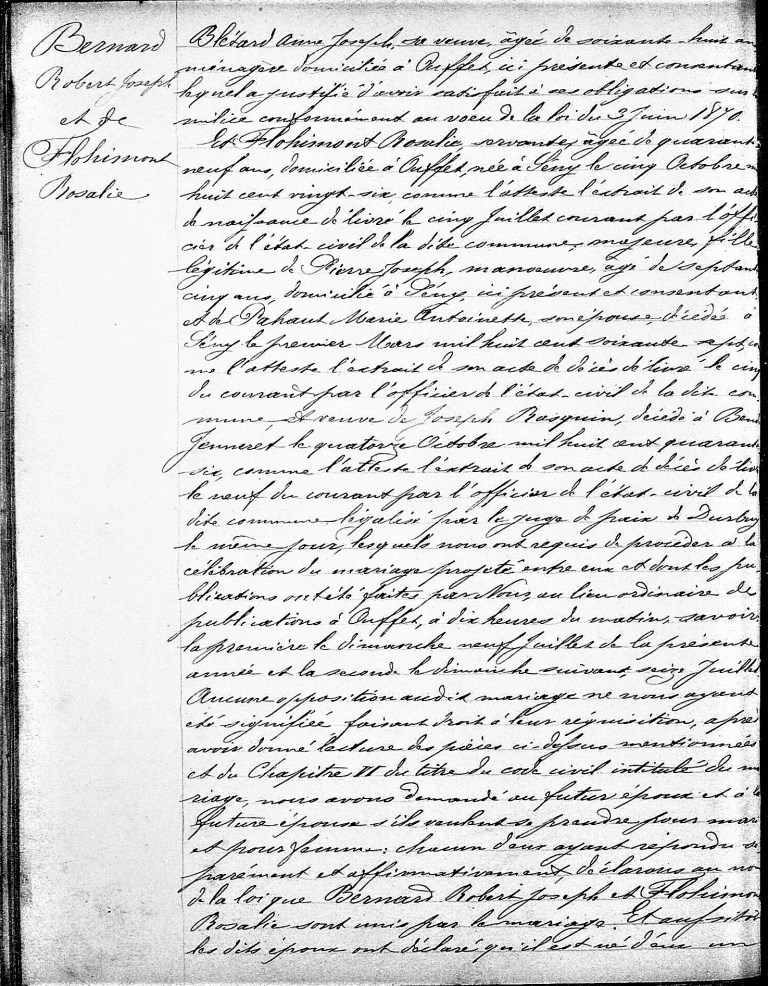 Bernard
Robert Joseph
et de
Flohimont
Rosalie
Blétard Anne Joseph, sa veuve, âgée de soixante-huit an
ménagère domiciliée à Ouffet, ici présente et consentan
lequel a justifié d'avoir satisfait à ses obligations sur l
milice conformément au voeu de la loi du 3 Juin 1870.
Et Flohimont Rosalie, servante, âgée de quarante
neuf ans, domiciliée à Ouffet, née à Seny le cinq Octobre m
huit cent vingt-six, comme l'atteste l'extrait de son acte
de naissance délivré le cinq Juillet courant par l'offi
cier de l'état civil de la dite commune, majeure, fille
légitime de Pierre Joseph, manoeuvre, âgé de septante
cinq ans, domicilié à Seny, ici présent et consentant
et de Pahaut Marie Antoinette, son épouse, décédée à
Seny le premier Mars mil huit cent soixante sept, co
me l'atteste l'extrait de son acte de décès délivré le cinq
du courant par l'officier de l'état-civil de la dite com
mune, et veuve de Joseph Rasquin, décédé à Bend
Jenneret le quatorze Octobre mil huit cent quarante
six, comme l'atteste l'extrait de son acte de décès déliv
le neuf du courant par l'officier de l'état-civil de la
dite commune légalisé par le juge de paix de Durbuy
le même jour, lesquels nous ont requis de procéder à la
célébration du mariage projeté entre eux et dont les pu
blications ont été faites par Nous, au lieu ordinaire de
publications à Ouffet, à dix heures du matin, savoir:
la première le dimanche neuf Juillet de la présente
année et la seconde le dimanche suivant, seize Juillet.
Aucune opposition audit mariage ne nous ayant
été signifiée, faisant droit à leur réquisition, après
avoir donné lecture des pièces ci-dessus mentionnées
et du Chapitre VI du titre du code civil intitulé du ma
riage, nous avons demandé au futur époux et à la
future épouse s'ils veulent se prendre pour mari
et pour femme: chacun d'eux ayant répondu sé
parément et affirmativement, déclarons au nom
de la loi que Bernard Robert Joseph et Flohimon
Rosalie sont unis par le mariage. Et aussitôt
les dits époux ont déclaré qu'il est né d'eux un